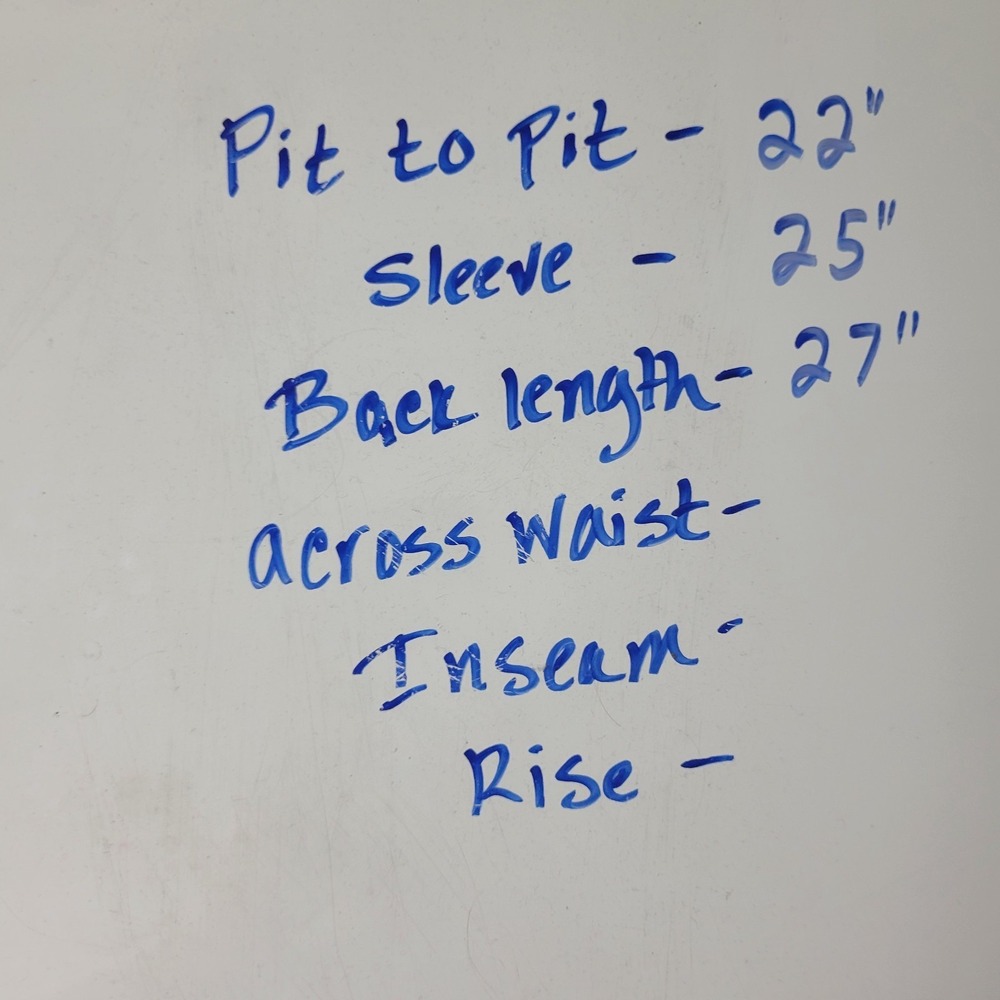 Pit to Pit - 22"
Sleeve - 25"
Back length - 27"
across waist -
Inseam -
Rise -